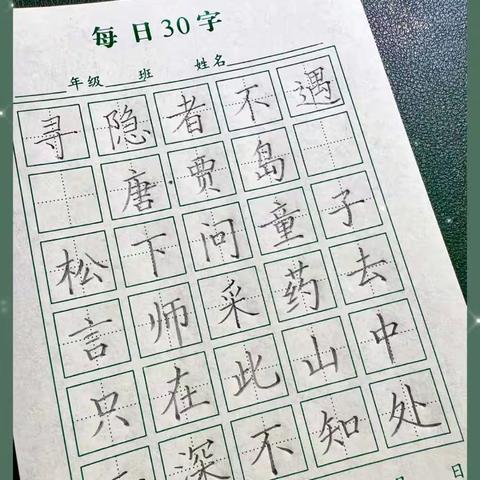 每日30字
年级 班 姓名
寻隐者不遇
唐·贾岛
松下问童子
言师采药去
只在此山中
深不知处
日